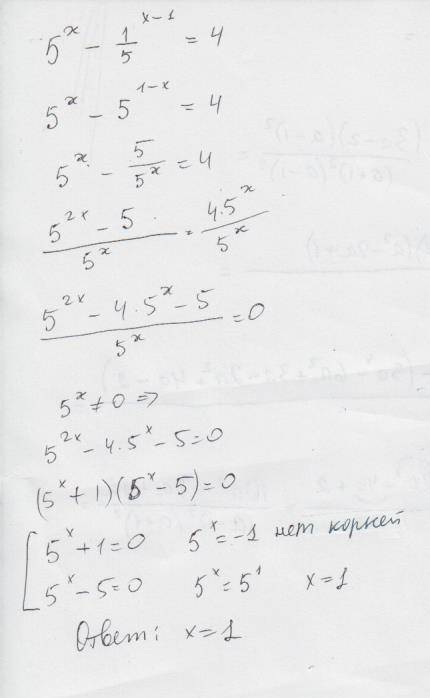 5^x - 1/5^(x-1) = 4
5^x - 5^(1-x) = 4
5^x - 5/5^x = 4
(5^(2x) - 5)/5^x = (4·5^x)/5^x
(5^(2x) - 4·5^x - 5)/5^x = 0
5^x ≠ 0 =>
5^(2x) - 4·5^x - 5 = 0
(5^x + 1)(5^x - 5) = 0
[ 5^x + 1 = 0 5^x = -1 нет корней
5^x - 5 = 0 5^x = 5^1 x = 1
Ответ: x = 1